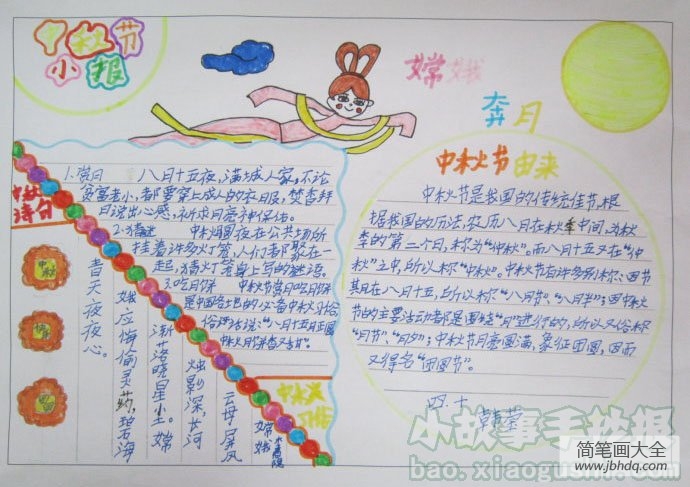 中秋节
小报
嫦娥
奔月
中秋节由来
中秋节是我国的传统佳节,根
据我国的历法,农历八月在秋季中间,为秋
季的第二个月,称为“仲秋”。而八月十五又在“仲
秋”之中,所以称“中秋”。中秋节有许多别称:因节
期在八月十五,所以称“八月节”、“八月半”;因中秋
节的主要活动都是围绕“月”进行的,所以又俗称
“月节”、“月夕”;中秋节月亮圆满,象征团圆,因而
又得名“团圆节”。
四.十
1.赏月 八月十五夜,满城人家,不论
贫富老小,都要穿上成人的衣服,焚香拜
月说出心愿,祈求月亮神保佑。
2.猜谜 中秋月圆夜在公共场所
挂着许多灯笼,人们都聚在一
起,猜灯笼身上写的谜语。
3.吃月饼 中秋节赏月吃月饼
是中国各地的必备中秋习俗
俗话说:“八月十五月正圆
中秋月饼香又甜”。
中秋
诗句
中秋
中秋
习俗
云母屏风
烛影深,长河
渐落晓星沉。嫦
娥应悔偷灵药,碧海
青天夜夜心。
嫦娥
李商隐
小故事手抄报
bao.xiaogushi.com
简笔画大全
www.jbhdq.com